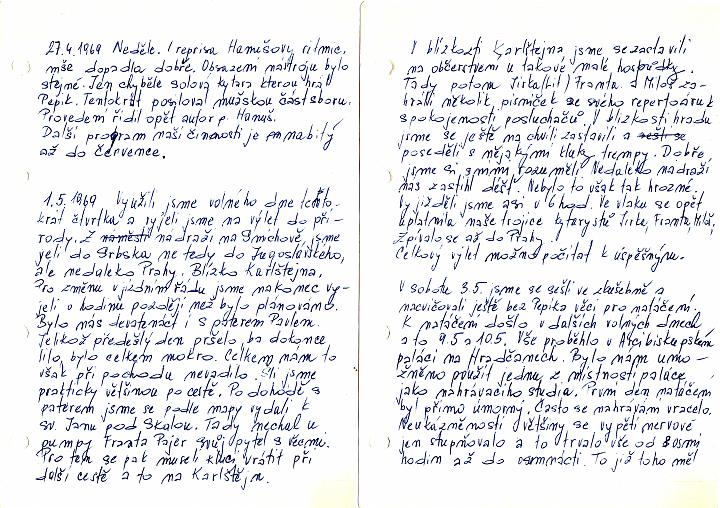 27.4.1969 Neděle. I reprisa Hanušovy ritmic.
mše dopadla dobře. Obsazení nástrojů bylo
stejné. Jen chyběla sólová kytara kterou hrál
Pepík. Tentokrát posiloval mužskou část sboru.
Provedení řídil opět autor p. Hanuš.
Další program naší činnosti je nabitý
až do července.
1.5.1969 Využili jsme volného dne tento-
krát čtvrtka a vyjeli jsme na výlet do pří-
rody. Z náměstí nádraží na Smíchově jsme
jeli do Srbska ne tedy do Jugoslávského,
ale nedaleko Prahy. Blízko Karlštejna.
Pro změnu v jízdním řádu jsme nakonec vy-
jeli o hodinu později než bylo plánováno.
Bylo nás devatenáct i s páterem Pavlem.
Jelikož předešlý den pršelo, ba dokonce
lilo, bylo celkem mokro. Celkem nám to
však při pochodu nevadilo. Šli jsme
prakticky většinou po cestě. Po dohodě s
páterem jsme se podle mapy vydali k
sv. Janu pod Skalou. Tady nechal u
pumpy Franta Pajer svůj pytel s věcmi.
Pro ten se pak museli kluci vrátit při
další cestě a to na Karlštejn.
V blízkosti Karlštejna jsme se zastavili
na občerstvení u takové malé hospůdky.
Tady potom Jirka(kil) Franta a Miloš za-
hráli několik písniček ze svého repertoáru k
spokojenosti posluchačů. V blízkosti hradu
jsme se ještě na chvíli zastavili a sešli se
poseděli s nějakými kluky trempy. Dobře
jsme si s nimi rozuměli. Nedaleko nádraží
nás zastihl déšť. Nebylo to však tak hrozné.
Vyjížděli jsme asi v 6 hod. Ve vlaku se opět
uplatnila naše trojice kytaristů Jirka, Franta, Miloš.
Zpívalo se až do Prahy.
Celkový výlet možno počítat k úspěšným.
V sobotu 3.5. jsme se sešli ve zkušebně a
nacvičovali ještě bez Pepíka věci pro natáčení.
K natáčení došlo v dalších volných dnech
a to 9.5 a 10.5. Vše proběhlo v Arcibiskupském
paláci na Hradčanech. Bylo nám umo-
žněno použít jednu z místností paláce
jako nahrávacího studia. První den natáčení
byl přímo úmorný. Často se nahrávání vracelo.
Neukázněností většiny se vypětí nervové
jen stupňovalo a to trvalo vše od 8 osmi
hodin až do osmnácti. To již toho měl